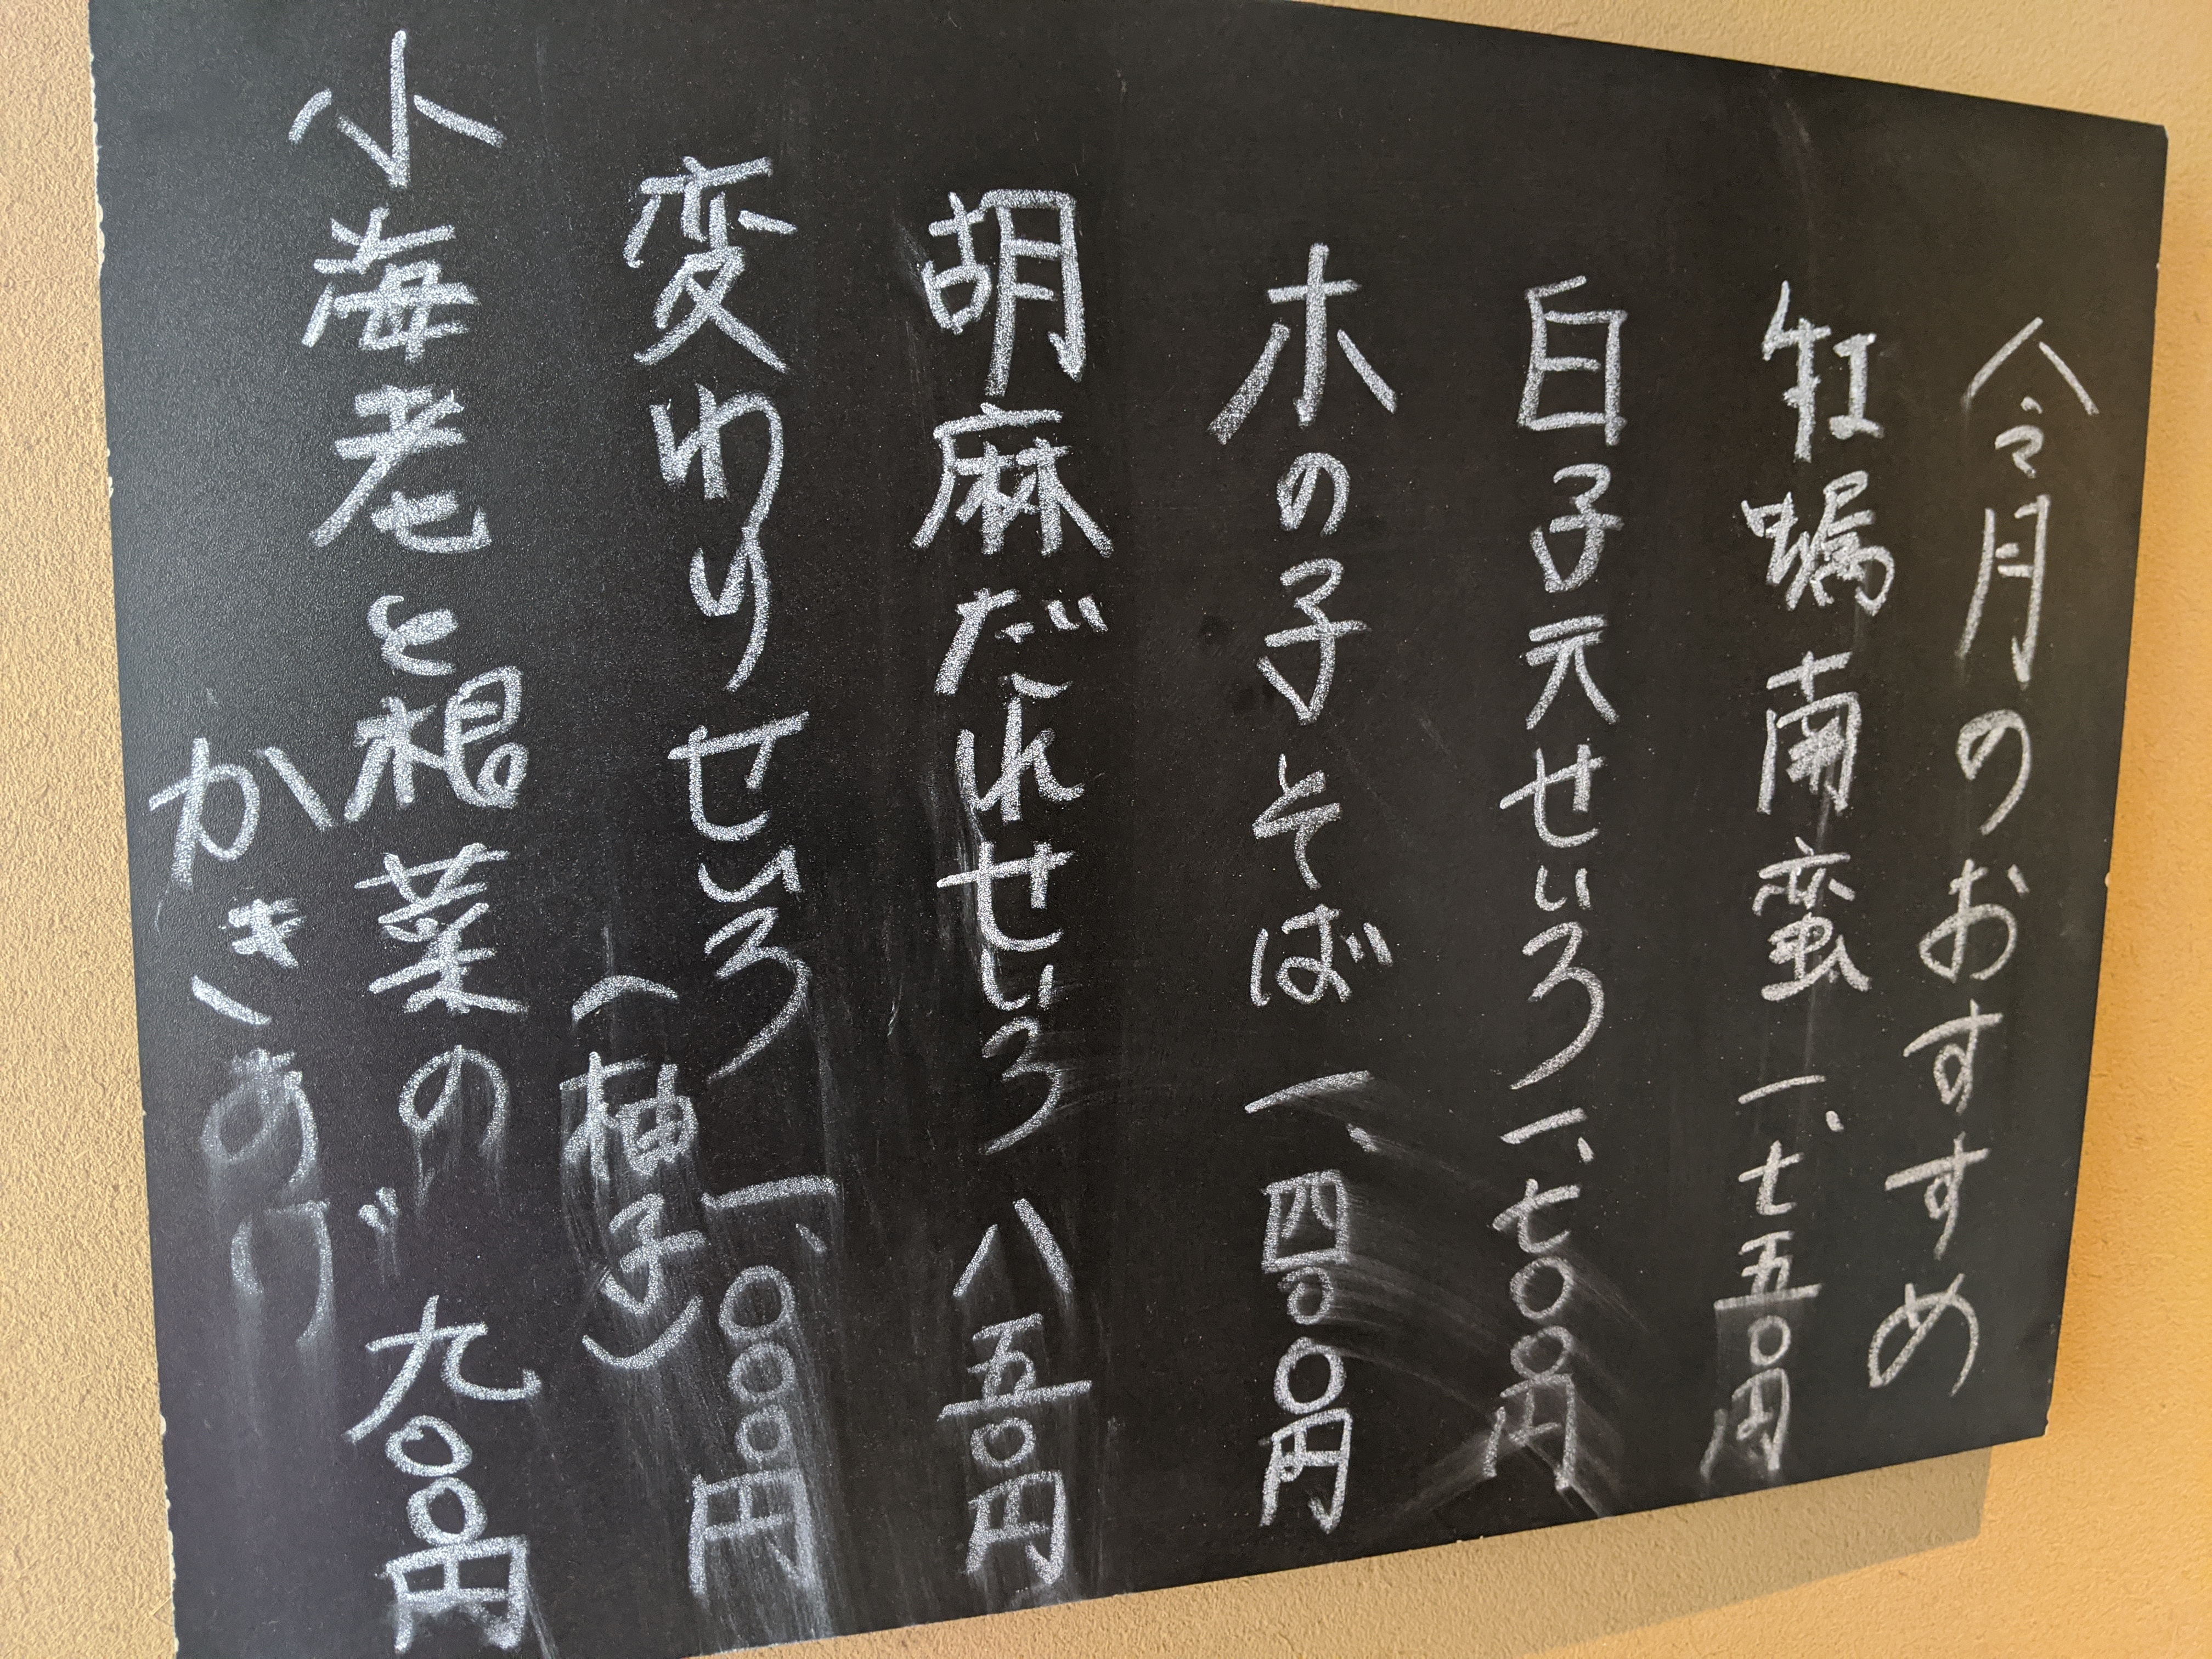 今月のおすすめ
牡蛎南蛮 一、七五〇円
白子天せいろ 一、七〇〇円
木の子そば 一、四〇〇円
胡麻だれせいろ 八五〇円
変わりせいろ 一、〇〇〇円
(柚子)
小海老と根菜の 九〇〇円
かきあげ